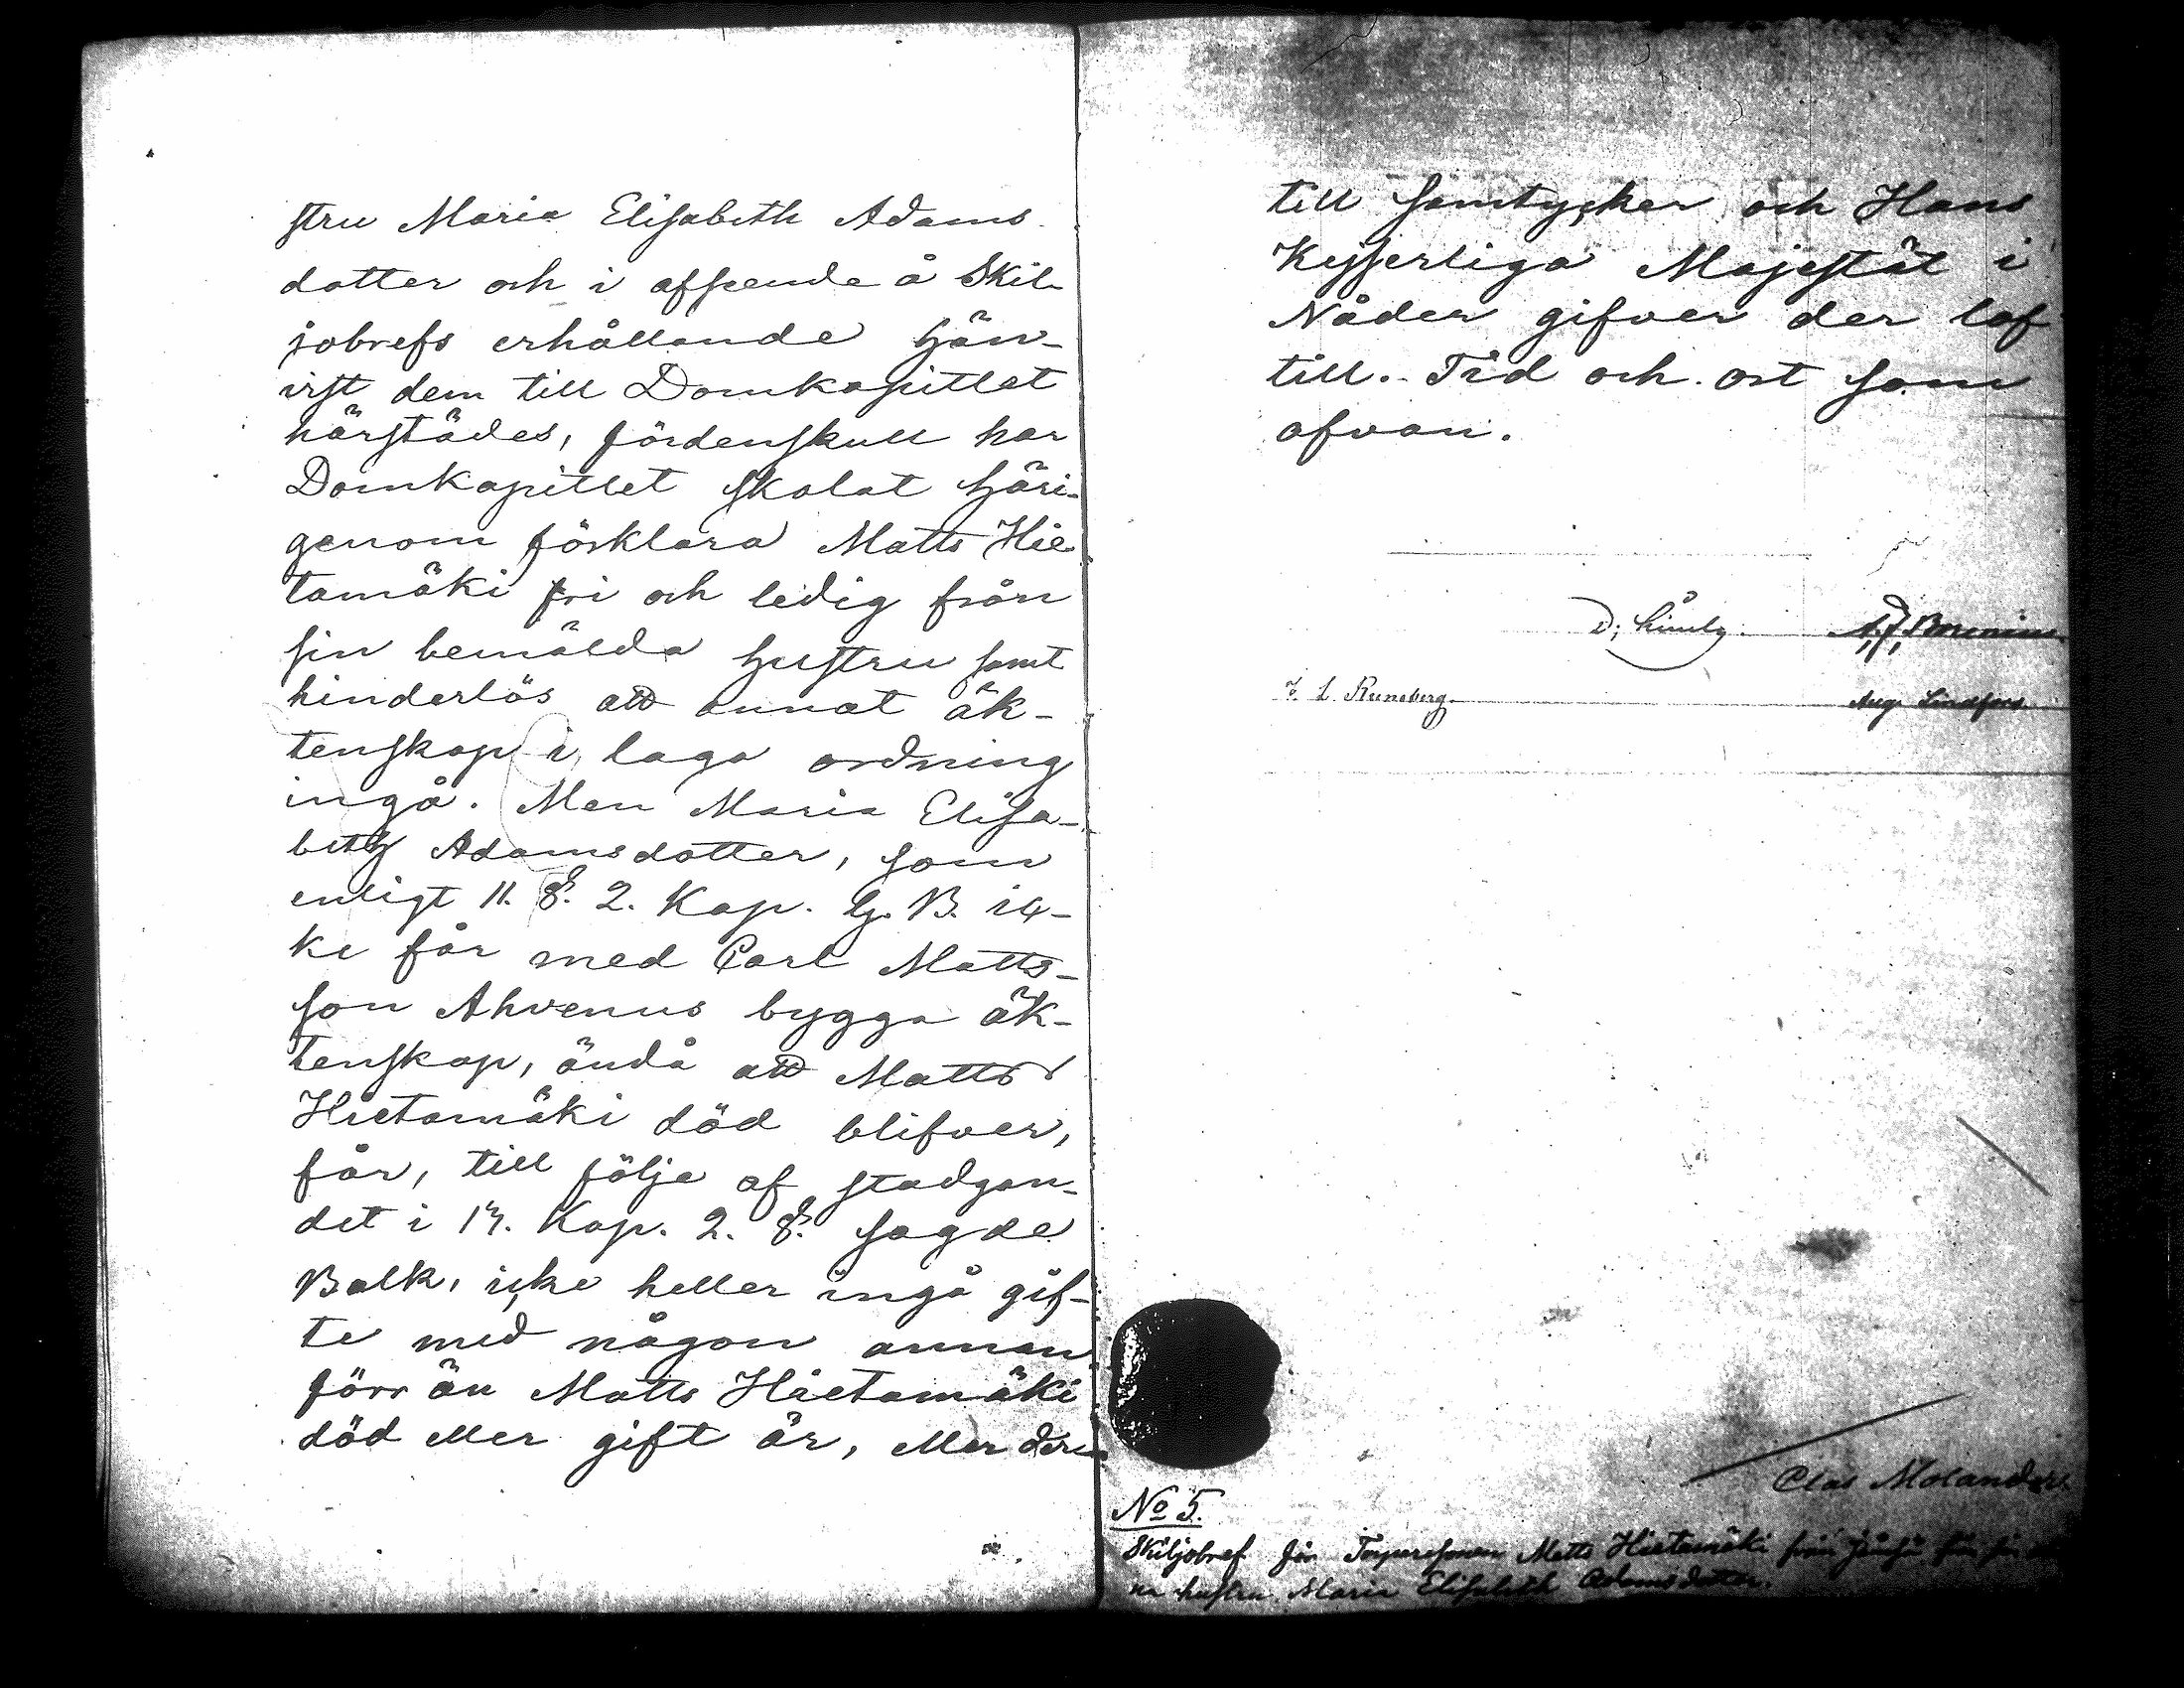 stru Maria Elisabeth Adams
dotter och i afseende å Skil-
jobrefs erhållande hän-
vist dem till Domkapitlet
härstädes, fördenskull har
Domkapitlet skolat häri-
genom förklara Matts Hie-
tamäki fri och ledig från
sin bemälda hustru samt
hinderlös att annat äk-
tenskap i laga ordning
ingå. Men Maria Elisa-
beth Adamsdotter, som
enligt 11. §. 2. Kap. G. B. ic-
ke får med Carl Matts-
son Ahvenus bygga äk-
tenskap, ändå att Matts
Hietamäki död blifver,
får, till följe af stadgan-
det i 13. Kap. 2. §. sagde
Balk, icke heller ingå gif-
te med någon annan
förr än Matts Hietamäki
död eller gift är, eller der-
till samtycker och Hans
Kejserliga Majestät i
Nåder gifver der lof
till. Tid och ort som
ofvan.
A. J. Borenius
J. L. Runeberg
Aug. Lindfors
Clas Molander
No 5.
Skiljobref för Torparesonen Matts Hietamäki från
hustru Maria Elisabeth Adamsdotter.